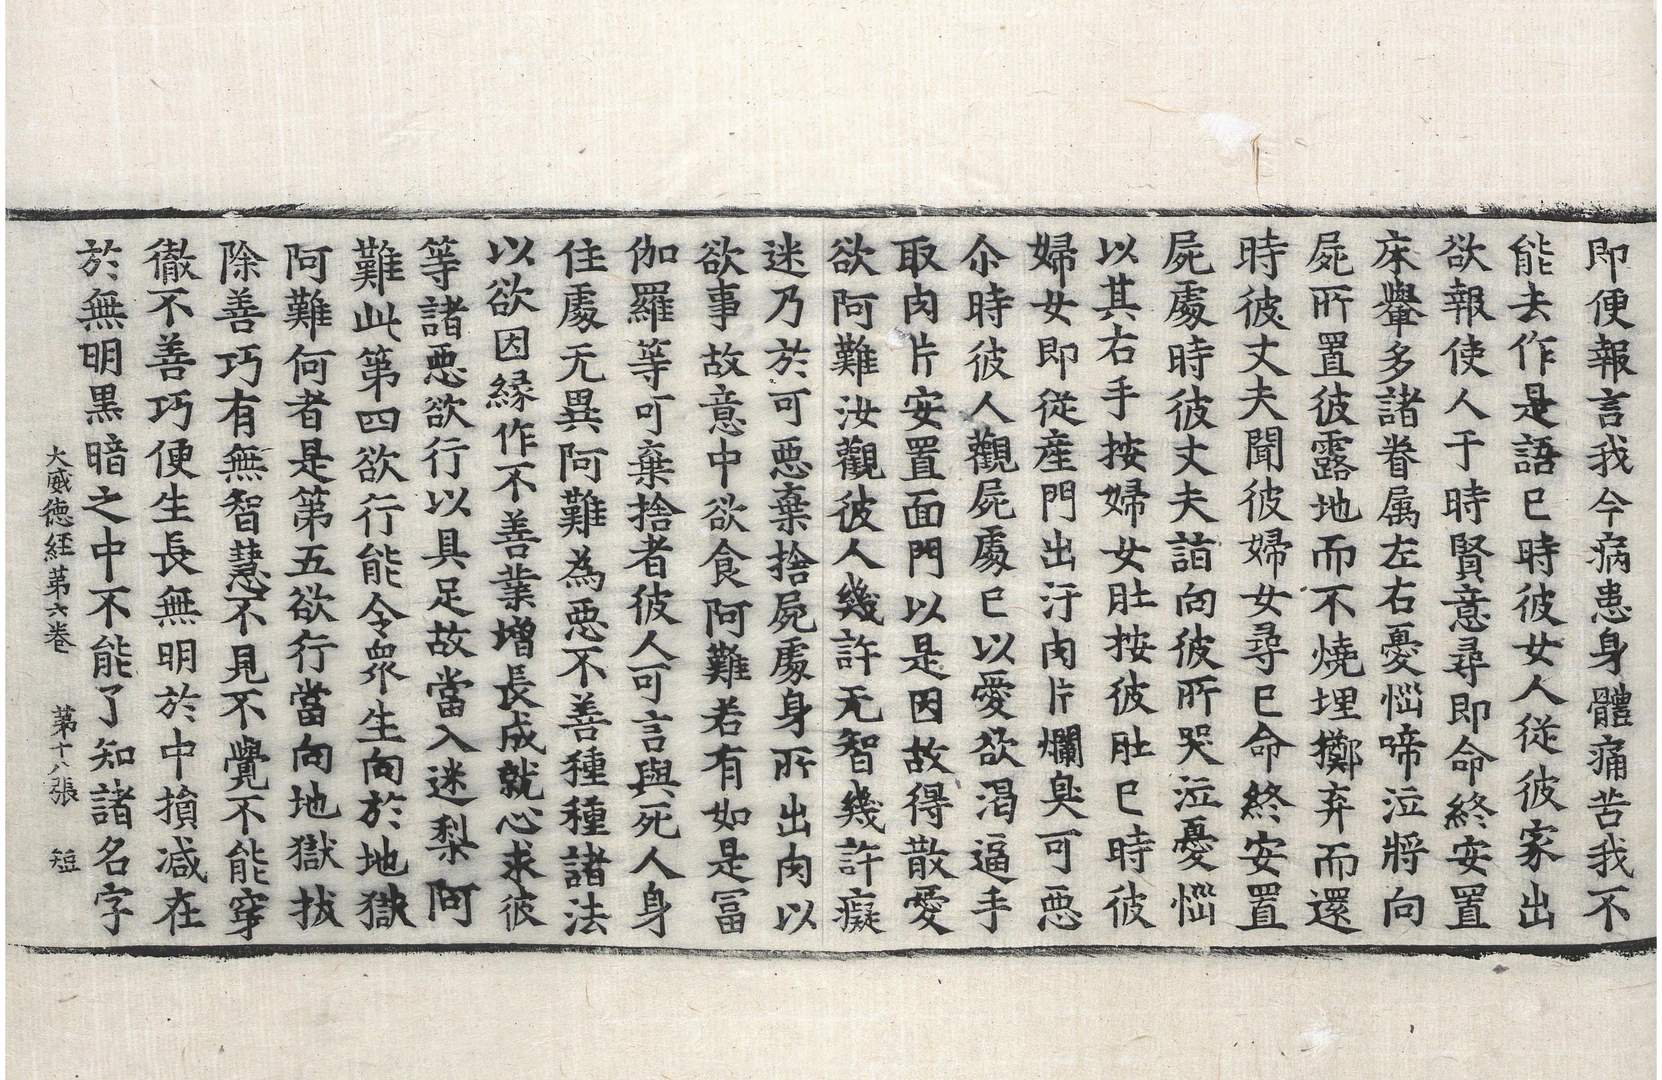 即便報言我今病患身體痛苦我不
能去作是語已時彼女人從彼家出
欲報使人于時賢意尋即命終安置
床轝多諸眷属左右憂惱啼泣將向
屍所置彼露地而不燒埋擲弃而還
時彼丈夫聞彼婦女尋已命終安置
屍處時彼丈夫詣向彼所哭泣憂惱
以其右手按婦女肚按彼肚已時彼
婦女即從産門出汙肉片爛臭可惡
尒時彼人觀屍處已以愛欲渴逼手
取肉片安置面門以是因故得散愛
欲阿難汝觀彼人幾許无智幾許癡
迷乃於可惡棄捨屍處身所出肉以
欲事故意中欲食阿難若有如是冨
伽羅等可棄捨者彼人可言與死人身
住處无異阿難為惡不善種種諸法
以欲因縁作不善業增長成就心求彼
等諸惡欲行以具足故當入迷梨阿
難此第四欲行能令衆生向於地獄
阿難何者是第五欲行當向地獄拔
除善巧有無智慧不見不覺不能穿
徹不善巧便生長無明於中損减在
於無明黒暗之中不能了知諸名字
大威徳経第六卷 第十八張 短